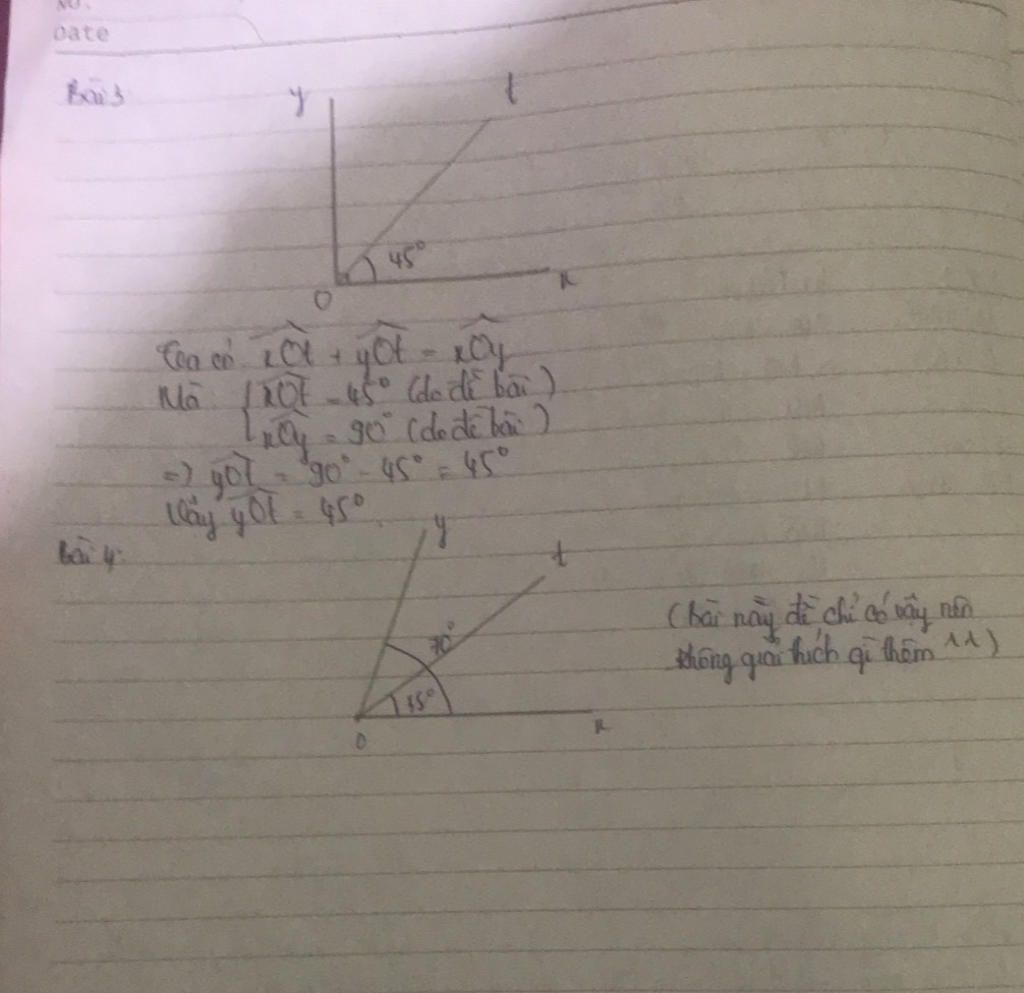 No.
Date
Bài 3
y t
45°
O x
Ta có xOt + yOt = xOy
Mà { xOt = 45° (do đề bài)
xOy = 90° (do đề bài)
=> yOt = 90° - 45° = 45°
Vậy yOt = 45°
Bài 4:
y
t
70°
(bài này đề chỉ có vậy nên
không giải thích gì thêm ^^)
35°
O x